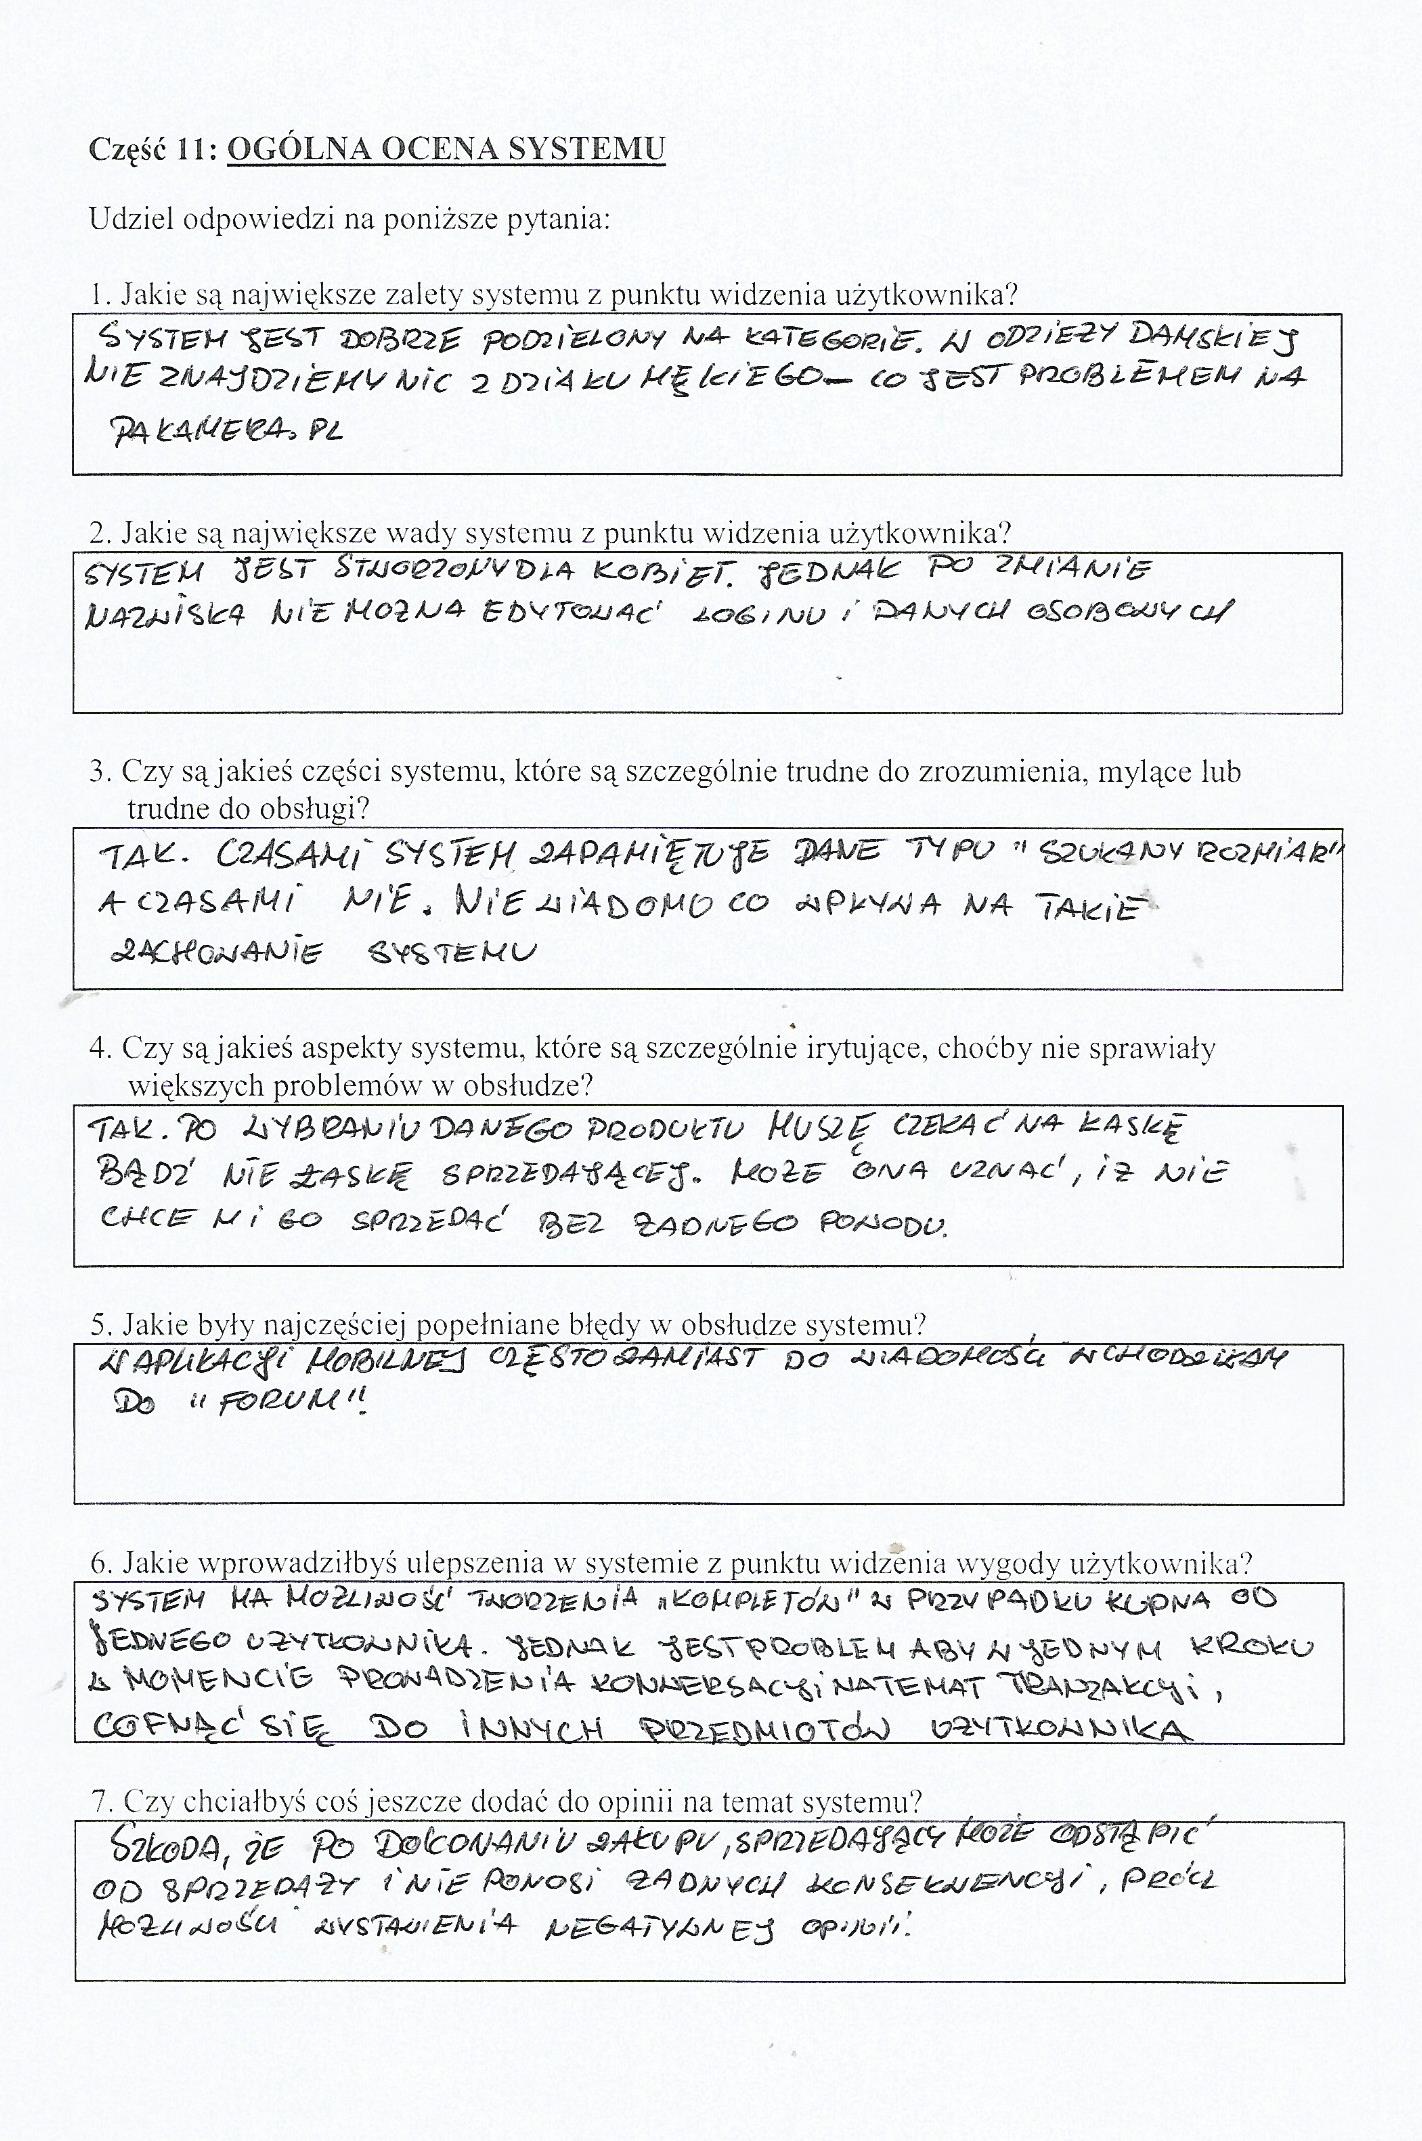 Część 11: OGÓLNA OCENA SYSTEMU
Udziel odpowiedzi na poniższe pytania:
1. Jakie są największe zalety systemu z punktu widzenia użytkownika?
SYSTEM JEST DOBRZE PODZIELONY NA KATEGORIE. W ODZIEŻY DAMSKIEJ
NIE ZNAJDZIEMY NIC Z DZIAŁU MĘKIEGO – CO JEST PROBLEMEM NA
PAKAMERA.PL
2. Jakie są największe wady systemu z punktu widzenia użytkownika?
SYSTEM JEST STWORZONY DLA KOBIET. JEDNAK PO ZMIANIE
NAZWISKA NIE MOŻNA EDYTOWAĆ LOGINU I DANYCH OSOBOWYCH
3. Czy są jakieś części systemu, które są szczególnie trudne do zrozumienia, mylące lub
trudne do obsługi?
TAK. CZASAMI SYSTEM ZAPAMIĘTUJE DANE TYPU "SZUKANY ROZMIAR"
A CZASAMI NIE. NIE WIADOMO CO WPŁYWA NA TAKIE
ZACHOWANIE SYSTEMU
4. Czy są jakieś aspekty systemu, które są szczególnie irytujące, choćby nie sprawiały
większych problemów w obsłudze?
TAK. PO WYBRANIU DANEGO PRODUKTU MUSZĘ CZEKAĆ NA ŁASKĘ
BĄDŹ NIE ŁASKĘ SPRZEDAJĄCEJ. MOŻE ONA UZNAĆ, IŻ NIE
CHCE MI GO SPRZEDAĆ BEZ ŻADNEGO POWODU.
5. Jakie były najczęściej popełniane błędy w obsłudze systemu?
W APLIKACJI MOBILNEJ CZĘSTO ZAMIAST DO WIADOMOŚCI WCHODZIŁAM
DO "FORUM"!
6. Jakie wprowadziłbyś ulepszenia w systemie z punktu widzenia wygody użytkownika?
SYSTEM MA MOŻLIWOŚĆ TWORZENIA „KOMPLETÓW" W PRZYPADKU KUPNA OD
JEDNEGO UŻYTKOWNIKA. JEDNAK JEST PROBLEM ABY W JEDNYM KROKU
W MOMENCIE PROWADZENIA KONWERSACJI NA TEMAT TRANZAKCJI,
COFNĄĆ SIĘ DO INNYCH PRZEDMIOTÓW UŻYTKOWNIKA
7. Czy chciałbyś coś jeszcze dodać do opinii na temat systemu?
SZKODA, ŻE PO DOKONANIU ZAKUPU, SPRZEDAJĄCY MOŻE ODSTĄPIĆ
OD SPRZEDAŻY I NIE PONOSI ŻADNYCH KONSEKWENCJI, PRÓCZ
MOŻLIWOŚCI WYSTAWIENIA NEGATYWNEJ OPINII.